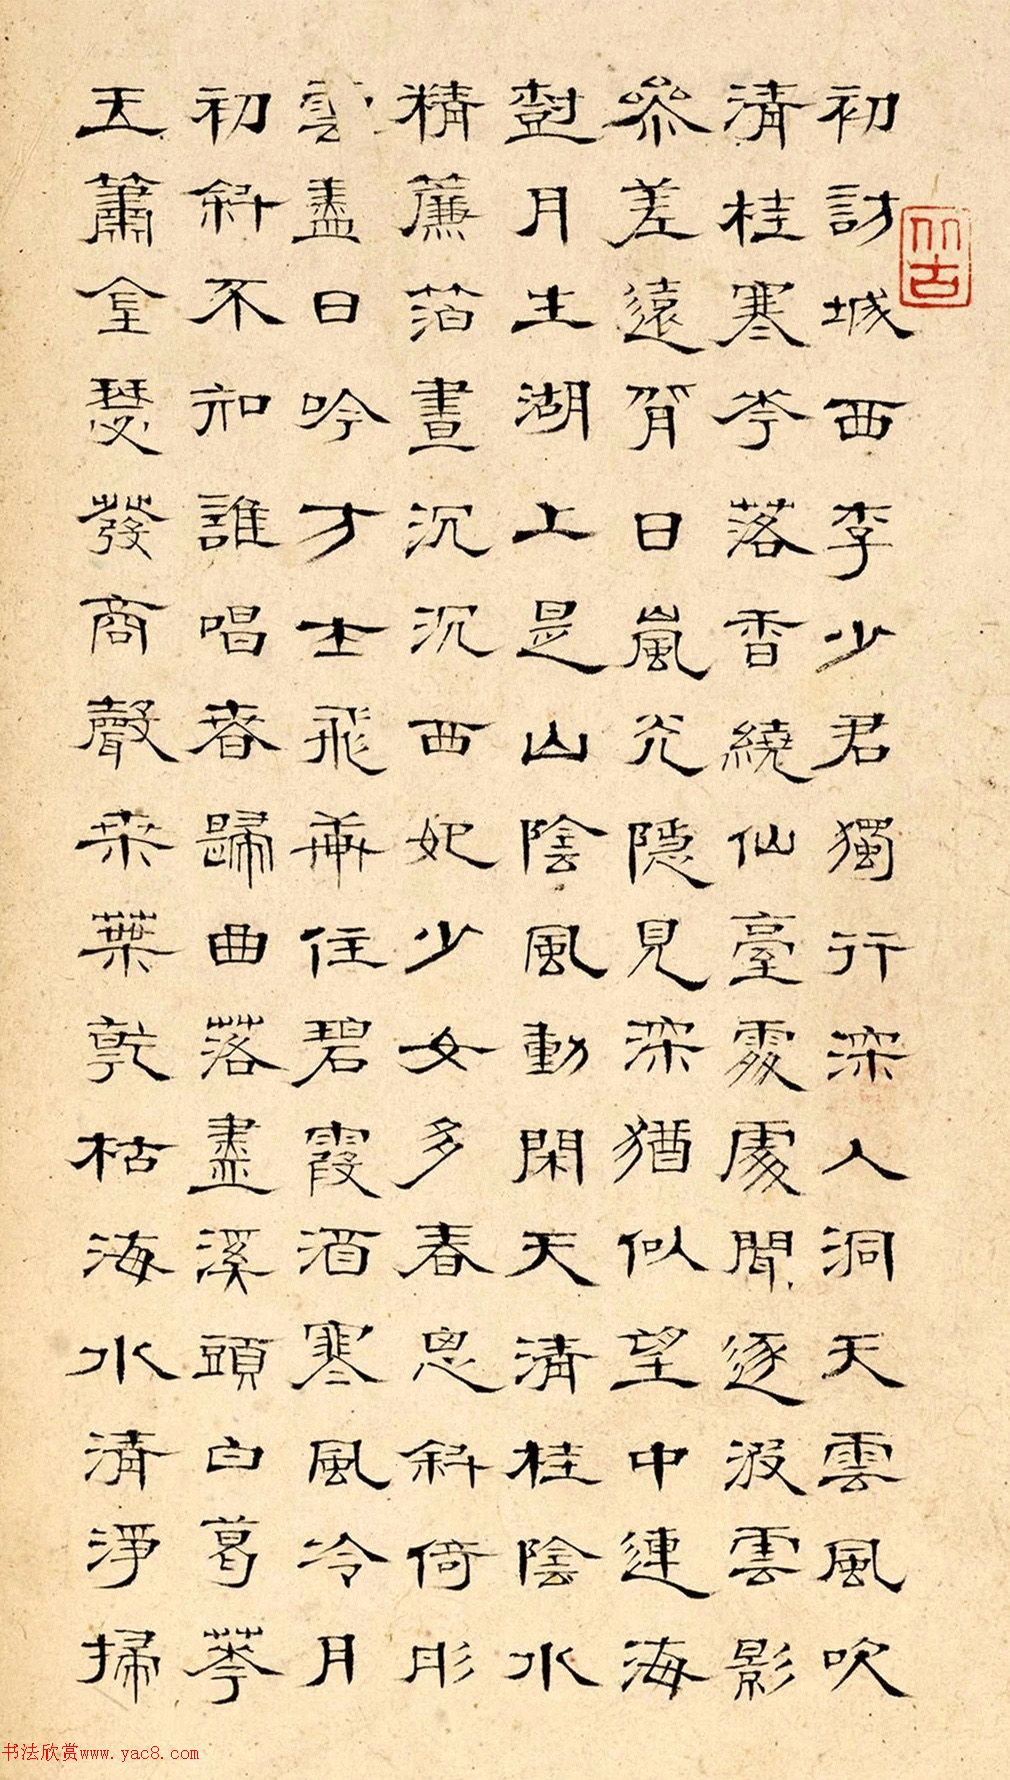 初訪城西李少君獨行深入洞天雲風吹
清桂寒花落香繞仙臺處處聞逐汲雲影
參差遠背日嵐光隱見深猶似望中連海
樹月生湖上是山陰風動閑天清桂陰水
精簾箔晝沉沉西妃少女多春思斜倚彤
雲盡日吟方士飛軒住碧霞酒寒風冷月
初斜不知誰唱春歸曲落盡溪頭白葛花
玉簫金瑟發商聲桑葉乾枯海水清淨掃
古
书法欣赏www.yac8.com